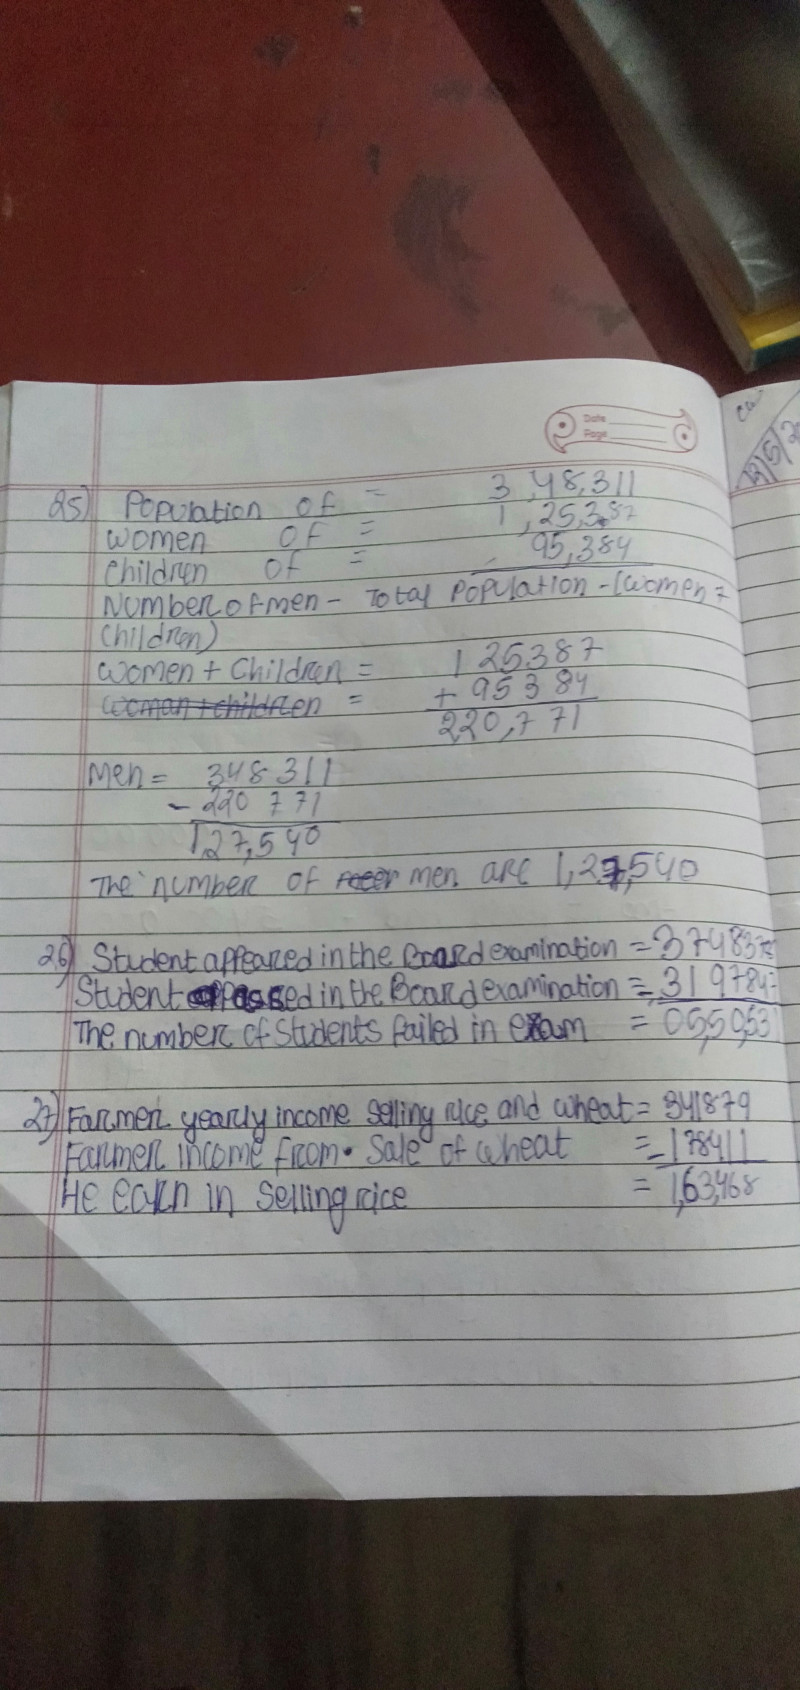 Date
Page
CW
25) Population of = 3,48,311
women of = 1,25,387
children of = 95,384
Number of men - Total Population - (women +
children)
women + children = 125387
woman + children = + 95384
220,771
Men = 348311
- 220 771
127,540
The number of men are 1,27,540
26) Student appeared in the Board examination = 37483
Student passed in the Board examination = 319784
The number of students failed in exam = 05,50,53
27) Farmer yearly income selling rice and wheat = 341879
Farmer income from sale of wheat = - 178411
He earn in selling rice = 1,63,468